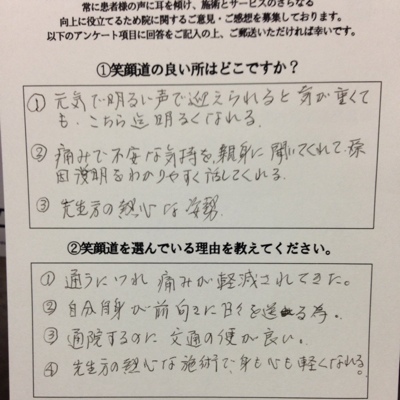 常に患者様の声に耳を傾け、施術とサービスのさらなる
向上に役立てるため院に関するご意見・ご感想を募集しております。
以下のアンケート項目に回答をご記入の上、ご郵送いただければ幸いです。
①笑顔道の良い所はどこですか？
① 元気で明るい声で迎えられると 気が重くて
も、こちら迄明るくなれる。
② 痛みで不安な気持を、親身に聞いてくれて、原
因説明をわかりやすく話してくれる。
③ 先生方の熱心な姿勢
②笑顔道を選んでいる理由を教えてください。
① 通うにつれ 痛みが軽減されてきた。
② 自分自身が前向きに日々を送る為。
③ 通院するのに 交通の便が良い。
④ 先生方の熱心な施術で、身も心も軽くなれる。